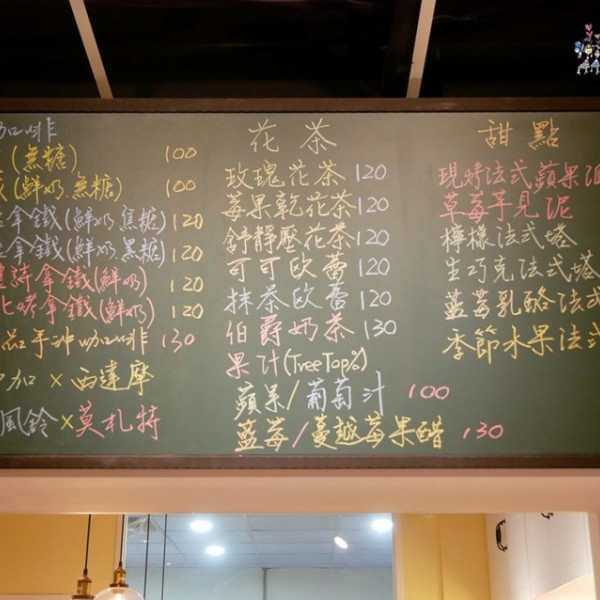 咖啡
(無糖) 100
(鮮奶.無糖) 100
拿鐵(鮮奶.焦糖) 120
拿鐵(鮮奶.黑糖) 120
拿鐵(鮮奶) 120
拿鐵(鮮奶) 120
品手沖咖啡 130
加×西達摩
風鈴×莫札特
花茶
玫瑰花茶 120
莓果乾花茶 120
舒靜壓花茶 120
可可歐蕾 120
抹茶歐蕾 120
伯爵奶茶 130
果汁(TreeTop%)
蘋果/葡萄汁 100
藍莓/蔓越莓果醋 130
甜點
現烤法式蘋果
草莓芋見泥
檸檬法式塔
生巧克法式塔
藍莓乳酪法式
季節水果法式